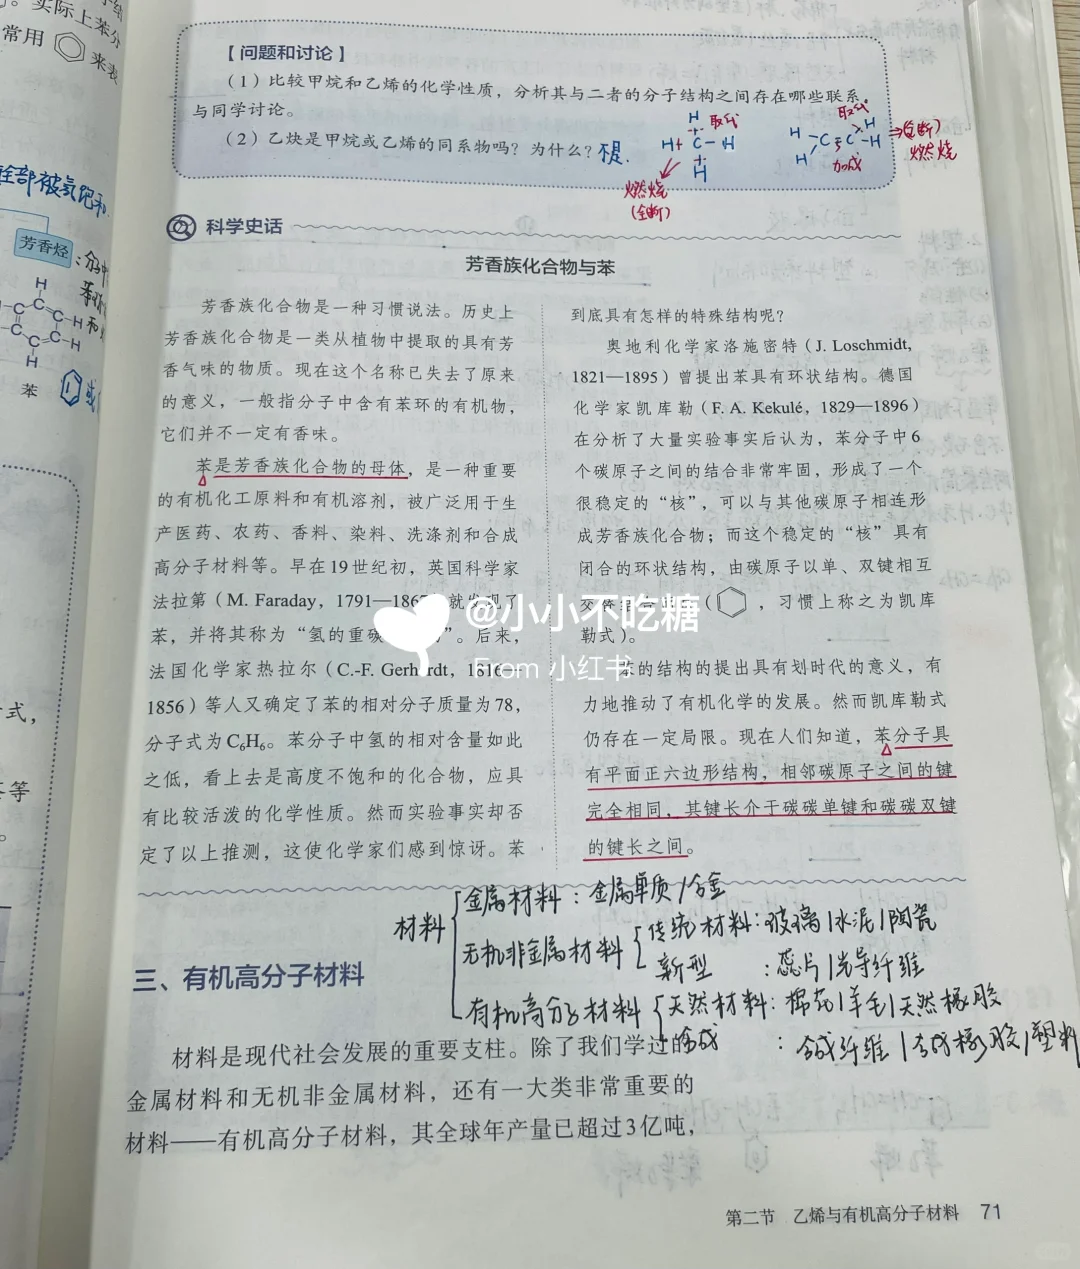 实际上苯分
常用
来表
芳香烃
H
H
H
H
苯
或
式，
等
。
【问题和讨论】
（1）比较甲烷和乙烯的化学性质，分析其与二者的分子结构之间存在哪些联系，
与同学讨论。
（2）乙炔是甲烷或乙烯的同系物吗？为什么？不是.
H 取代
H C H
H
燃烧
(全断)
取代
H C C H
H H
加成
(全断)
燃烧
科学史话
芳香族化合物与苯
芳香族化合物是一种习惯说法。历史上
芳香族化合物是一类从植物中提取的具有芳
香气味的物质。现在这个名称已失去了原来
的意义，一般指分子中含有苯环的有机物，
它们并不一定有香味。
苯是芳香族化合物的母体，是一种重要
的有机化工原料和有机溶剂，被广泛用于生
产医药、农药、香料、染料、洗涤剂和合成
高分子材料等。早在19世纪初，英国科学家
法拉第（M. Faraday，1791—186 就发现了
苯，并将其称为“氢的重碳 ”。后来，
法国化学家热拉尔（C.-F. Gerh rdt，1816—
1856）等人又确定了苯的相对分子质量为78，
分子式为C₆H₆。苯分子中氢的相对含量如此
之低，看上去是高度不饱和的化合物，应具
有比较活泼的化学性质。然而实验事实却否
定了以上推测，这使化学家们感到惊讶。苯
到底具有怎样的特殊结构呢？
奥地利化学家洛施密特（J. Loschmidt，
1821—1895）曾提出苯具有环状结构。德国
化学家凯库勒（F. A. Kekulé，1829—1896）
在分析了大量实验事实后认为，苯分子中6
个碳原子之间的结合非常牢固，形成了一个
很稳定的“核”，可以与其他碳原子相连形
成芳香族化合物；而这个稳定的“核”具有
闭合的环状结构，由碳原子以单、双键相互
交替结合而成（ ，习惯上称之为凯库
勒式）。
苯的结构的提出具有划时代的意义，有
力地推动了有机化学的发展。然而凯库勒式
仍存在一定局限。现在人们知道，苯分子具
有平面正六边形结构，相邻碳原子之间的键
完全相同，其键长介于碳碳单键和碳碳双键
的键长之间。
@小小不吃糖
From 小红书
材料
金属材料：金属单质/合金
无机非金属材料
传统材料：玻璃/水泥/陶瓷
新型：芯片/光导纤维
有机高分子材料
天然材料：棉花/羊毛/天然橡胶
合成：合成纤维/合成橡胶/塑料
三、有机高分子材料
材料是现代社会发展的重要支柱。除了我们学过的
金属材料和无机非金属材料，还有一大类非常重要的
材料——有机高分子材料，其全球年产量已超过3亿吨，
第二节 乙烯与有机高分子材料 71